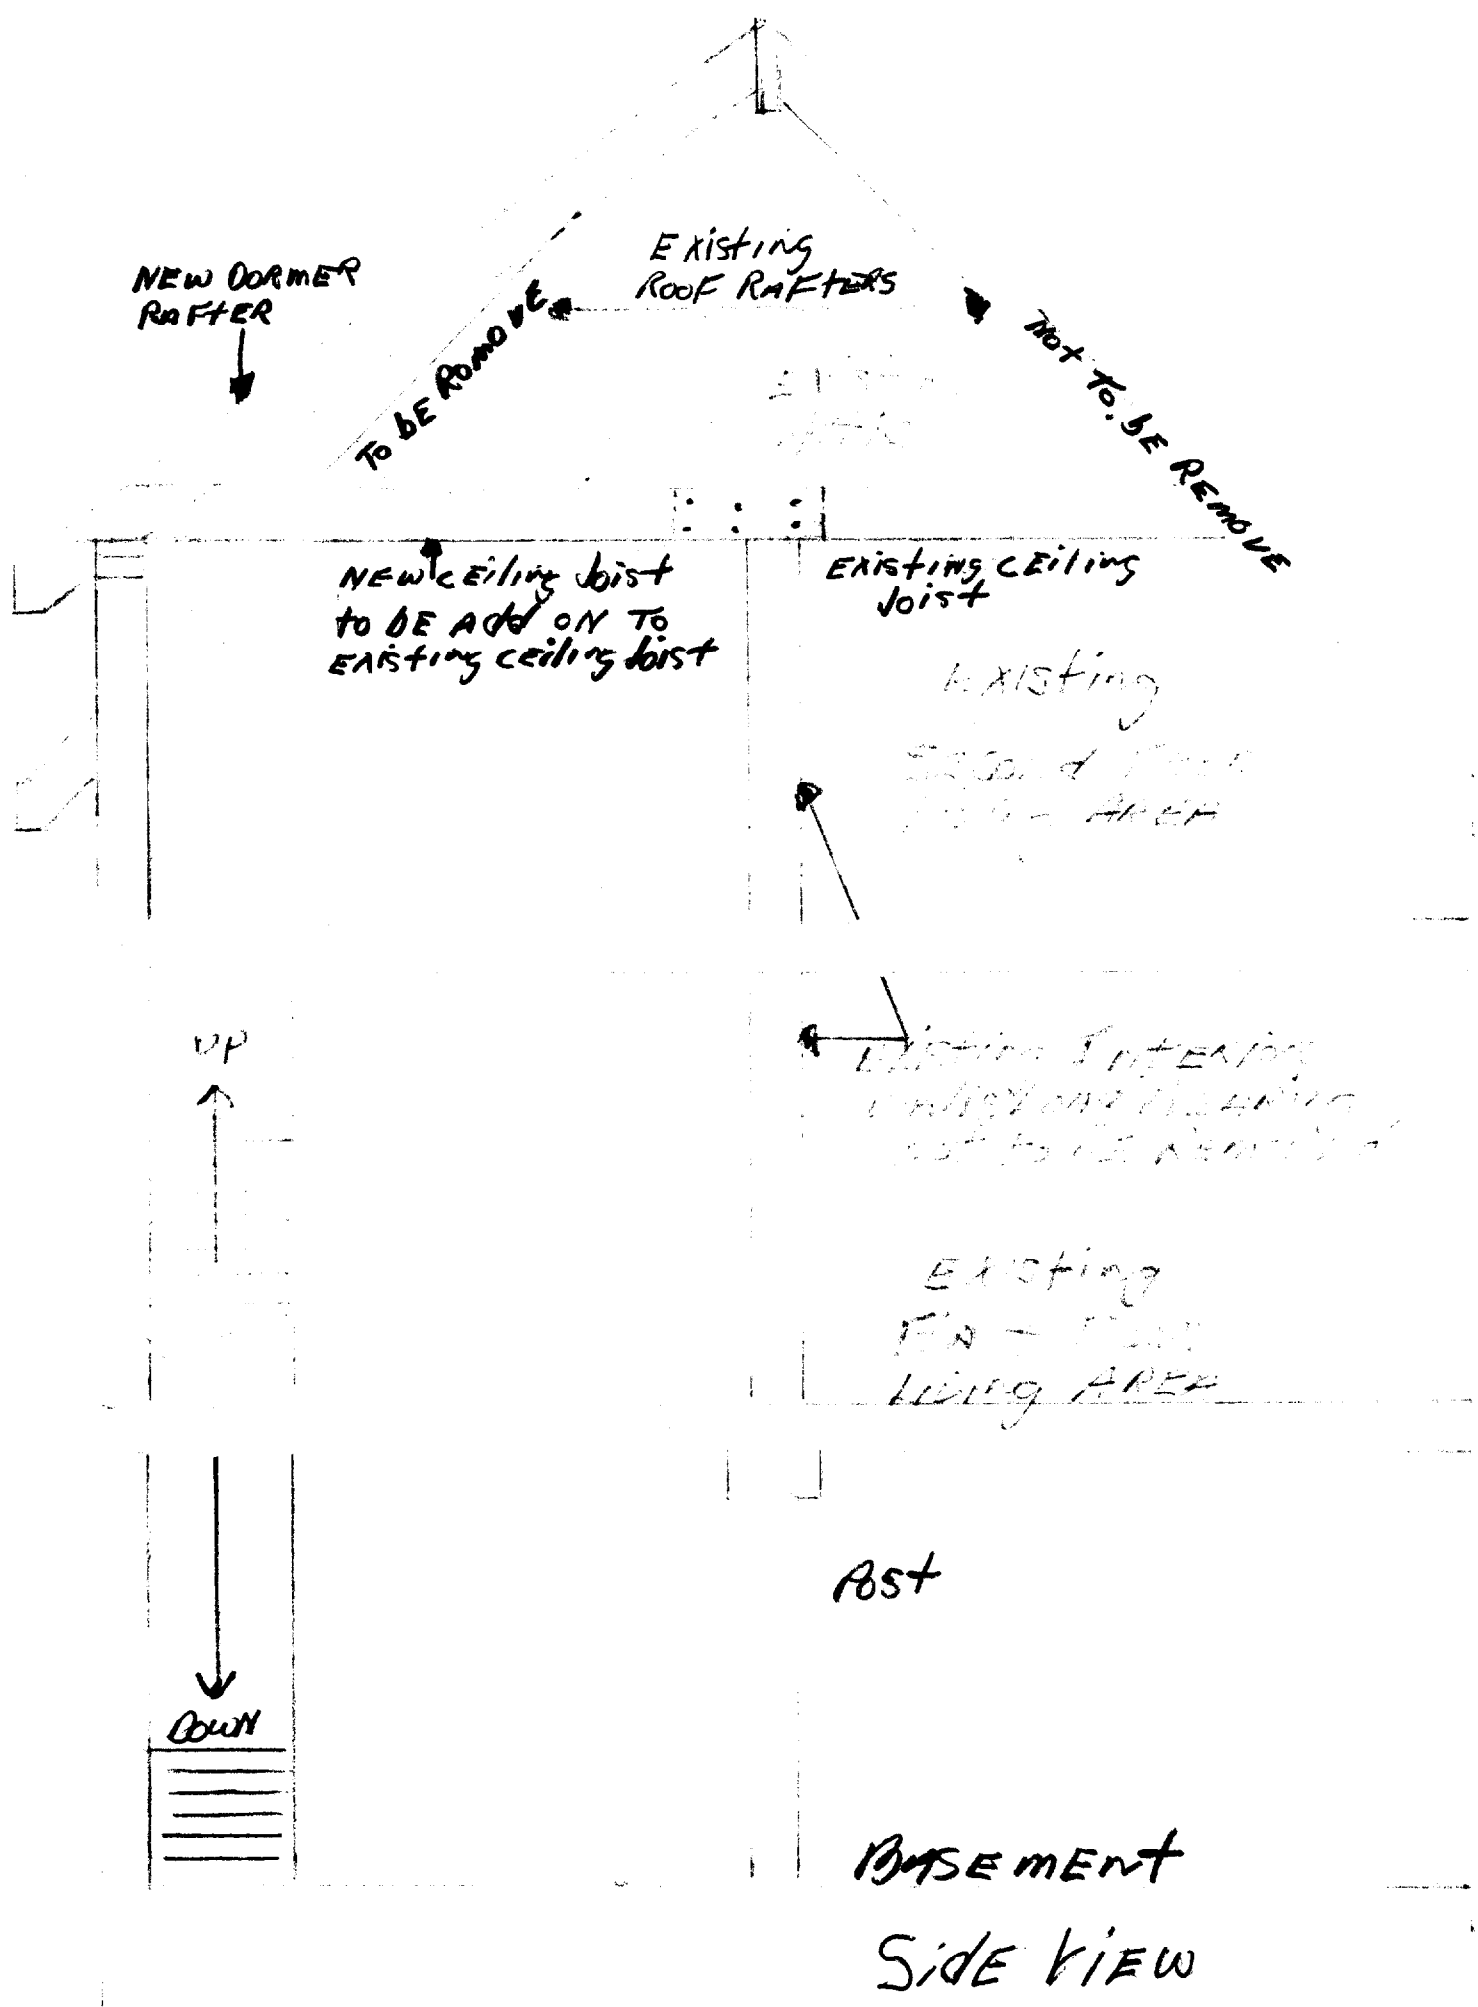 Existing
Roof Rafters
New Dormer
Rafter
To be Romove
Not To. be Remove
New ceiling Joist
to be Add on To
Existing ceiling Joist
Existing ceiling
Joist
Existing
Second Floor
AREA
UP
Existing Interior
not to be
Existing
Living AREA
Post
Down
Basement
Side View